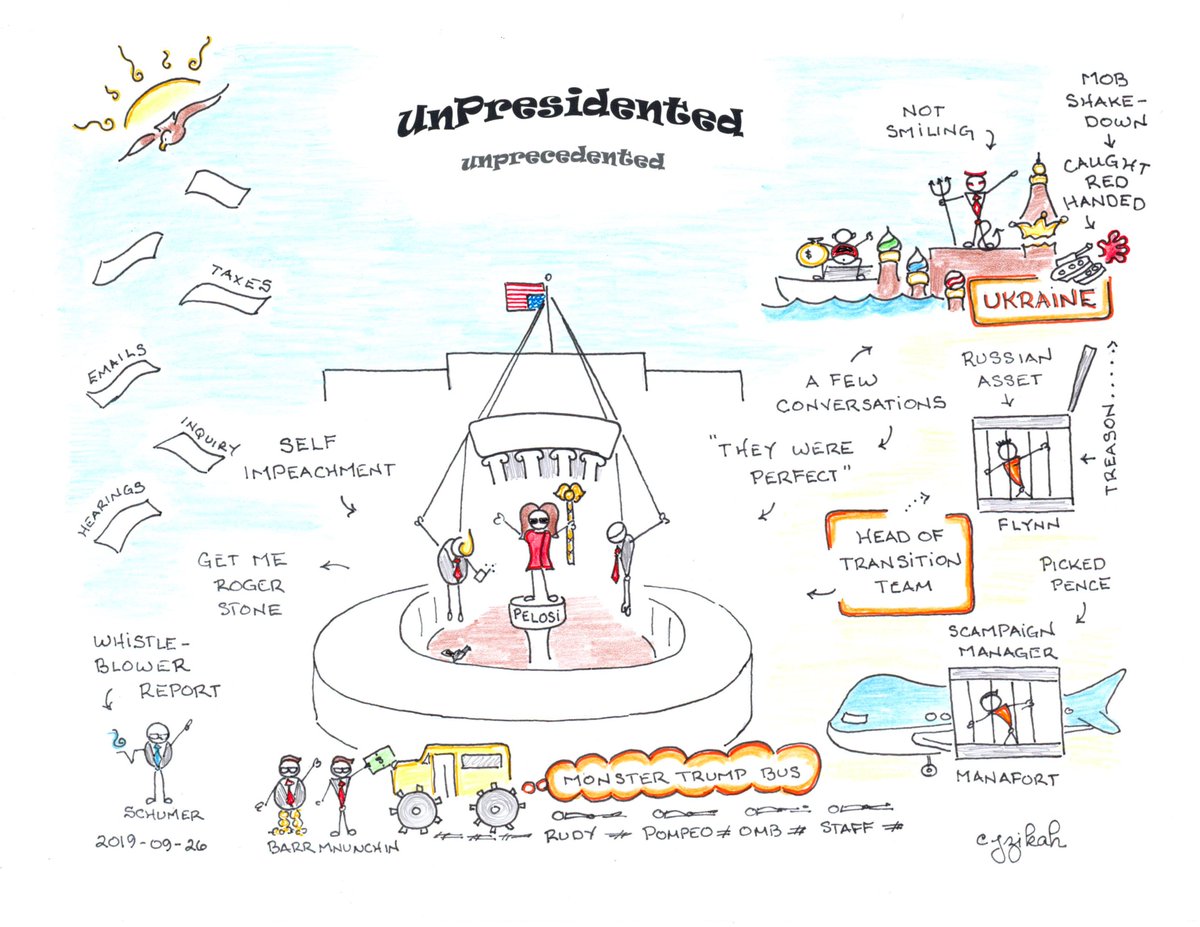 UnPresidented
unprecedented
NOT
SMILING
MOB
SHAKE-
DOWN
CAUGHT
RED
HANDED
$
UKRAINE
TAXES
EMAILS
INQUIRY
HEARINGS
SELF
IMPEACHMENT
GET ME
ROGER
STONE
A FEW
CONVERSATIONS
"THEY WERE
PERFECT"
RUSSIAN
ASSET
TREASON.....
FLYNN
HEAD OF
TRANSITION
TEAM
PICKED
PENCE
SCAMPAIGN
MANAGER
MANAFORT
PELOSI
WHISTLE-
BLOWER
REPORT
SCHUMER
2019-09-26
BARR MNUNCHIN
MONSTER TRUMP BUS
RUDY POMPEO OMB STAFF
cyzikah